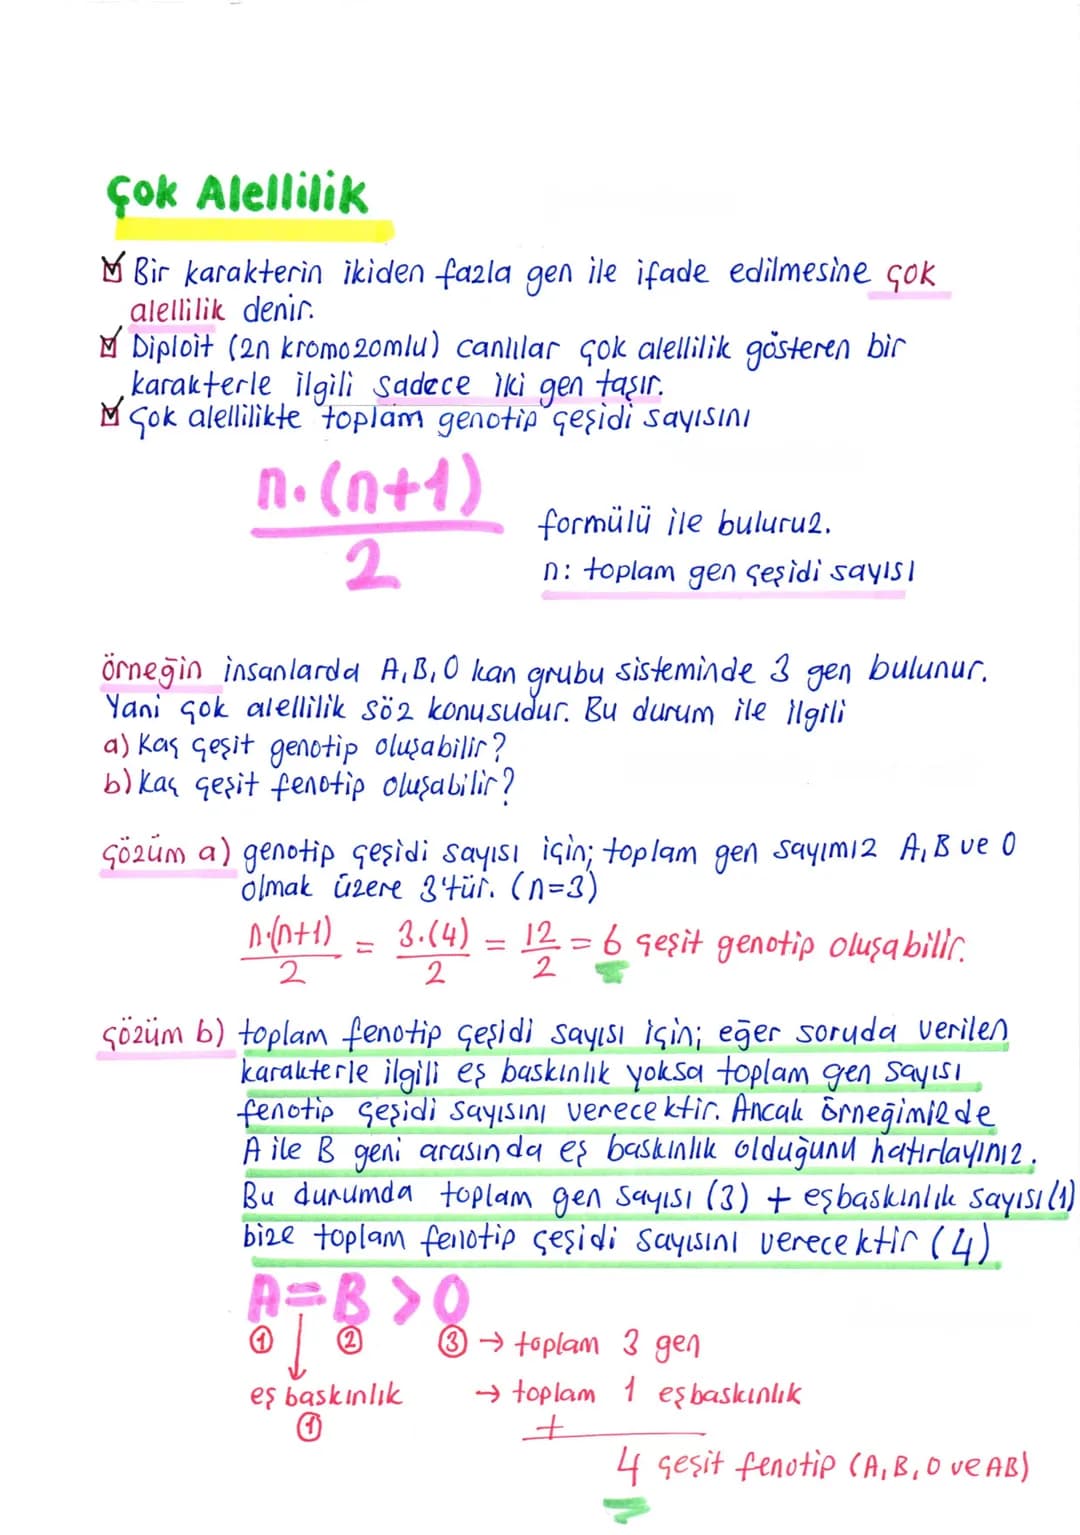 Çok Alellilik
Bir karakterin ikiden fazla gen ile ifade edilmesine çok
alellilik denir.
Diploit (2n kromozomlu) canlılar çok alellilik gösteren bir
karakterle ilgili sadece iki gen taşır.
Çok alellilikte toplam genotip çeşidi sayısını
n.(n+1)
2
formülü ile buluruz.
n: toplam gen çeşidi sayısı
örneğin insanlarda A,B,O kan grubu sisteminde 3 gen bulunur.
Yani çok alellilik söz konusudur. Bu durum ile ilgili
a) Kaç çeşit genotip oluşabilir?
b) Kaç çeşit fenotip oluşabilir?
çözüm a) genotip çeşidi sayısı için; toplam gen sayımız A,B ve O
olmak üzere 3'tür. (n=3)
n.(n+1)/2 = 3.(4)/2 = 12/2 = 6 çeşit genotip oluşabilir.
çözüm b) toplam fenotip çeşidi sayısı için; eğer soruda verilen
karakterle ilgili eş baskınlık yoksa toplam gen sayısı
fenotip çeşidi sayısını verecektir. Ancak örneğimizde
A ile B geni arasında eş baskınlık olduğunu hatırlayınız.
Bu durumda toplam gen sayısı (3) + eşbaskınlık sayısı (1)
bize toplam fenotip çeşidi sayısını verecektir (4)
A=B>O
1 2 3 → toplam 3 gen
eş baskınlık → toplam 1 eşbaskınlık
1 +
4 çeşit fenotip (A,B,O ve AB)